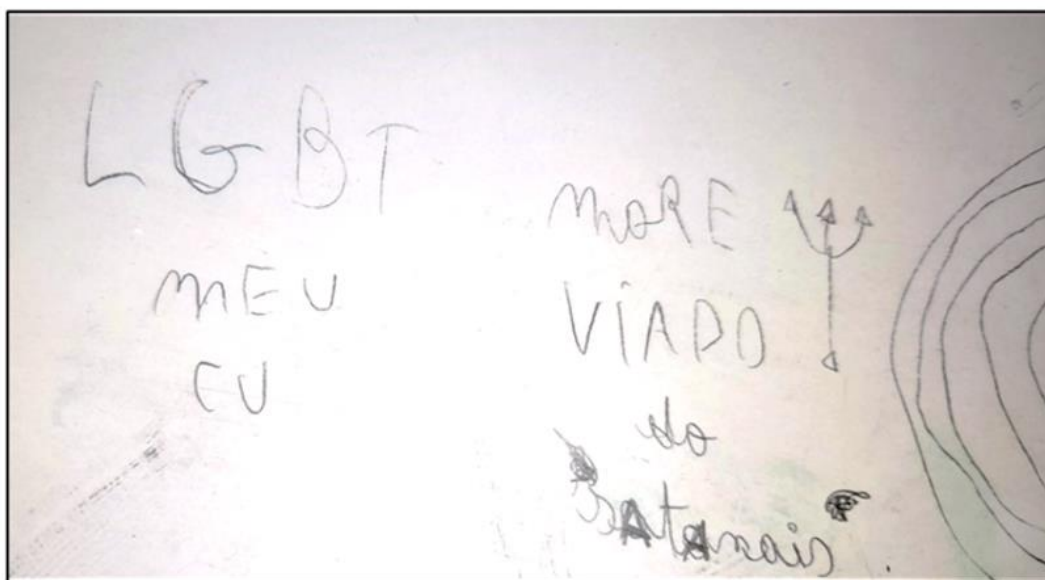 LGBT
MEU
CU
MORE
VIADO
do
Satanais